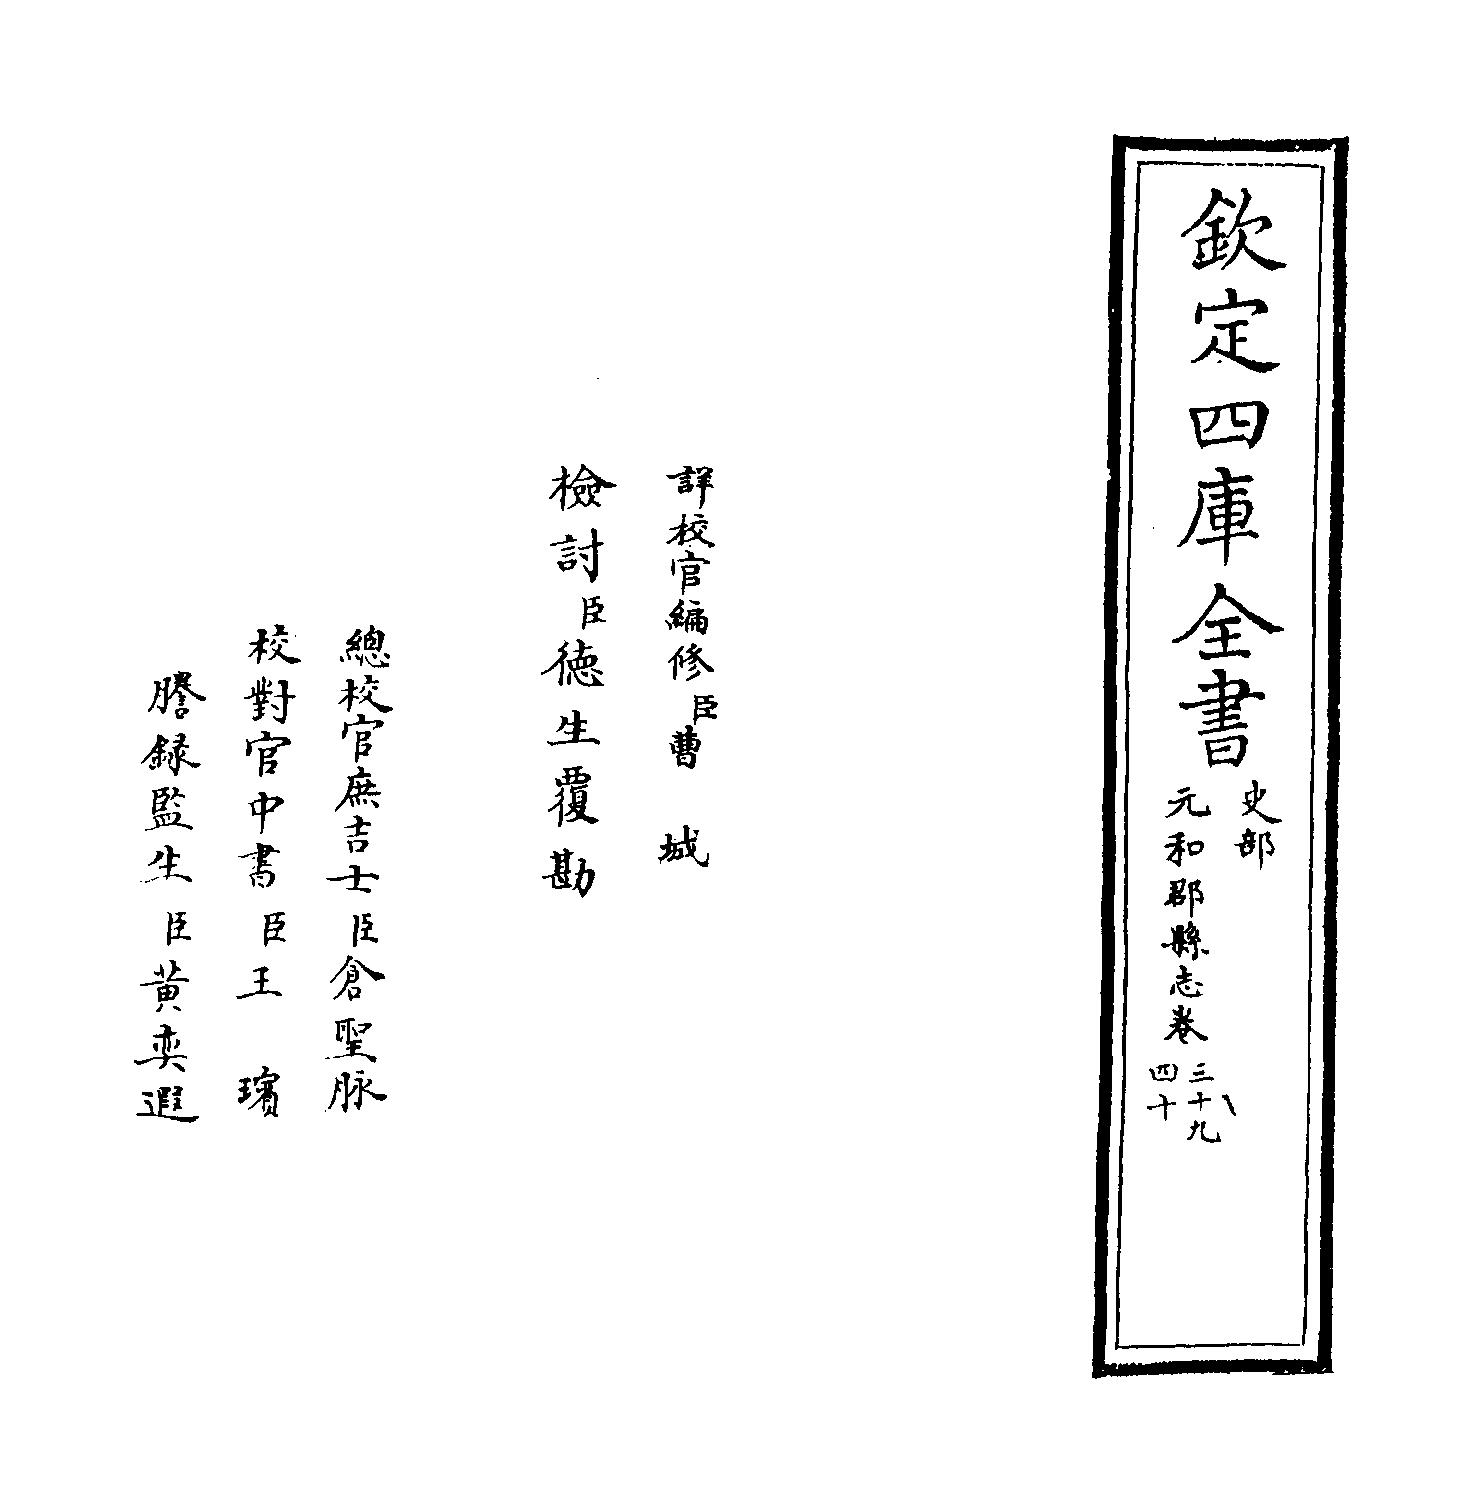 欽定四庫全書
史部
元和郡縣志卷三十九
四十
詳校官編修臣曹城
檢討臣德生覆勘
總校官庶吉士臣倉聖脉
校對官中書臣王璸
謄録監生臣黄奕遐